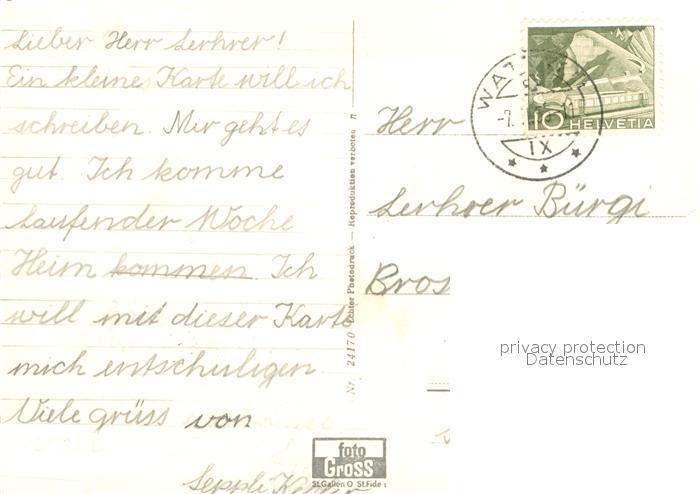 Lieber Herr Lerhrer!
Ein kleine Karte will ich
schreiben. Mir geht es
gut. Ich komme
laufender Woche
Heim kommen Ich
will mit dieser Karte
mich entschuligen
Viele grüss von
Seppli
Nr. 24170 Echter Photodruck — Reproduktion verboten
foto
Gross
St.Gallen O St.Fide
WAT
-7.
IX
10 HELVETIA
Herr
Lerhrer Bürgi
Bros
privacy protection
Datenschutz